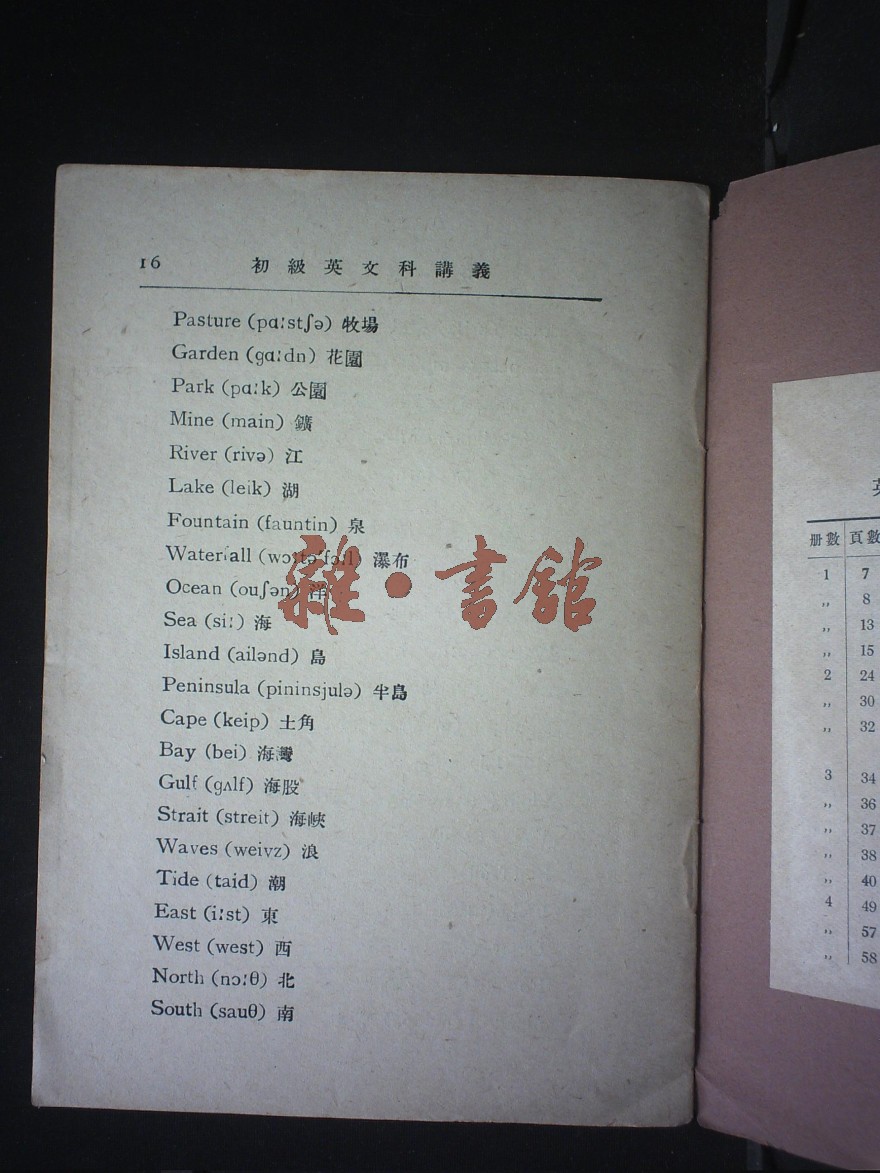 16 初級英文科講義
Pasture (pɑːstʃə) 牧場
Garden (gɑːdn) 花園
Park (pɑːk) 公園
Mine (main) 鑛
River (rivə) 江
Lake (leik) 湖
Fountain (fauntin) 泉
Waterfall (wɔːtə'fɔːl) 瀑布
Ocean (ouʃən) 洋
Sea (siː) 海
Island (ailənd) 島
Peninsula (pininsjulə) 半島
Cape (keip) 土角
Bay (bei) 海灣
Gulf (gʌlf) 海股
Strait (streit) 海峽
Waves (weivz) 浪
Tide (taid) 潮
East (iːst) 東
West (west) 西
North (nɔːθ) 北
South (sauθ) 南
雜·書館
册數 頁數
1 7
,, 8
,, 13
,, 15
2 24
,, 30
,, 32
3 34
,, 36
,, 37
,, 38
,, 40
4 49
,, 57
,, 58